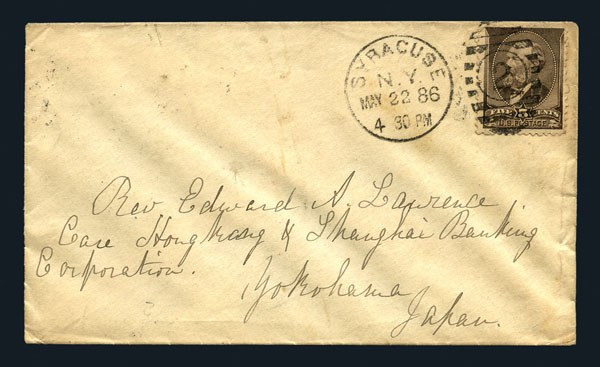 SYRACUSE
N.Y.
MAY 22 86
4 30 PM
FIVE 5 CENTS
U.S. POSTAGE
Rev Edward A. Lawrence.
Care Hongkong & Shanghai Banking
Corporation.
Yokohama
Japan.